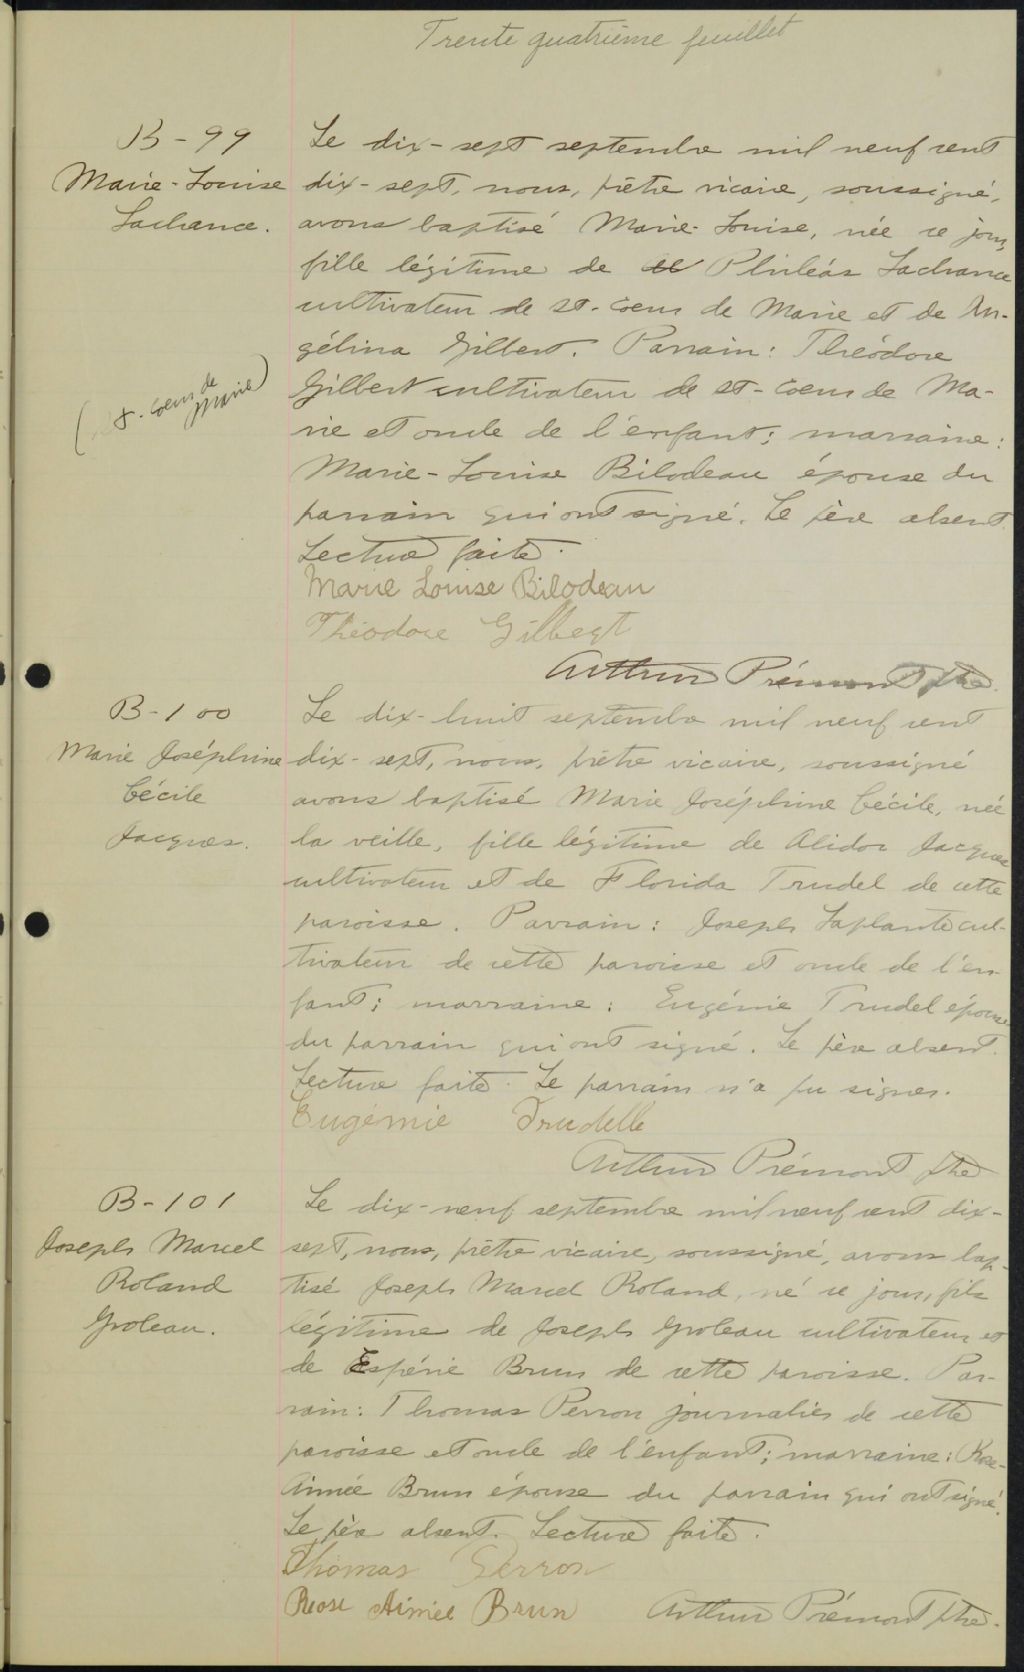 Trente quatrième feuillet
B-99
Marie-Louise
Lachance.
(St. Coeur de
Marie)
Le dix-sept septembre mil neuf cent
dix-sept, nous, prêtre vicaire, soussigné,
avons baptisé Marie-Louise, née ce jour,
fille légitime de Philéas Lachance
cultivateur de St-Coeur de Marie et de An-
gélina Gilbert. Parrain: Théodore
Gilbert cultivateur de St-Coeur de Ma-
rie et oncle de l'enfant; marraine:
Marie-Louise Bilodeau épouse du
parrain qui ont signé. Le père absent.
Lecture faite.
Marie Louise Bilodeau
Théodore Gilbert
Arthur Prémont ptre.
B-100
Marie Joséphine
Cécile
Jacques.
Le dix-huit septembre mil neuf cent
dix-sept, nous, prêtre vicaire, soussigné
avons baptisé Marie Joséphine Cécile, née
la veille, fille légitime de Alidor Jacques
cultivateur et de Florida Trudel de cette
paroisse. Parrain: Joseph Laplante cul-
tivateur de cette paroisse et oncle de l'en-
fant; marraine: Eugénie Trudel épouse
du parrain qui ont signé. Le père absent.
Lecture faite. Le parrain n'a pu signer.
Eugémie Trudelle
Arthur Prémont ptre
B-101
Joseph Marcel
Roland
Groleau.
Le dix-neuf septembre mil neuf cent dix-
sept, nous, prêtre vicaire, soussigné, avons bap-
tisé Joseph Marcel Roland, né ce jour, fils
légitime de Joseph Groleau cultivateur et
de Espérie Brun de cette paroisse. Par-
rain: Thomas Perron journalier de cette
paroisse et oncle de l'enfant; marraine: Rose-
Aimée Brun épouse du parrain qui ont signé.
Le père absent. Lecture faite.
Thomas Perron
Rose Aimée Brun
Arthur Prémont ptre.